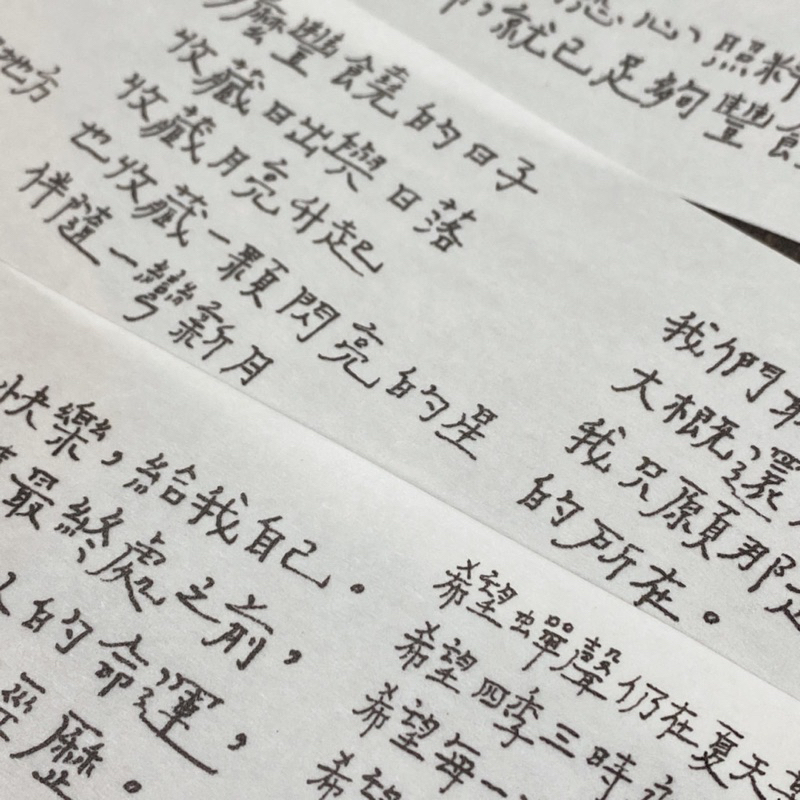 心、照料
就已足夠豐饒
地方
麼豐饒的日子
收藏日出與日落
收藏月亮升起
也收藏一顆閃亮的星
伴隨一彎新月
我們
大概還
我只願那
的所在。
快樂,給我自己。
最終處之前,
人的命運,
經歷。
希望蟬聲仍在夏天
希望四季三時
希望每一
希望